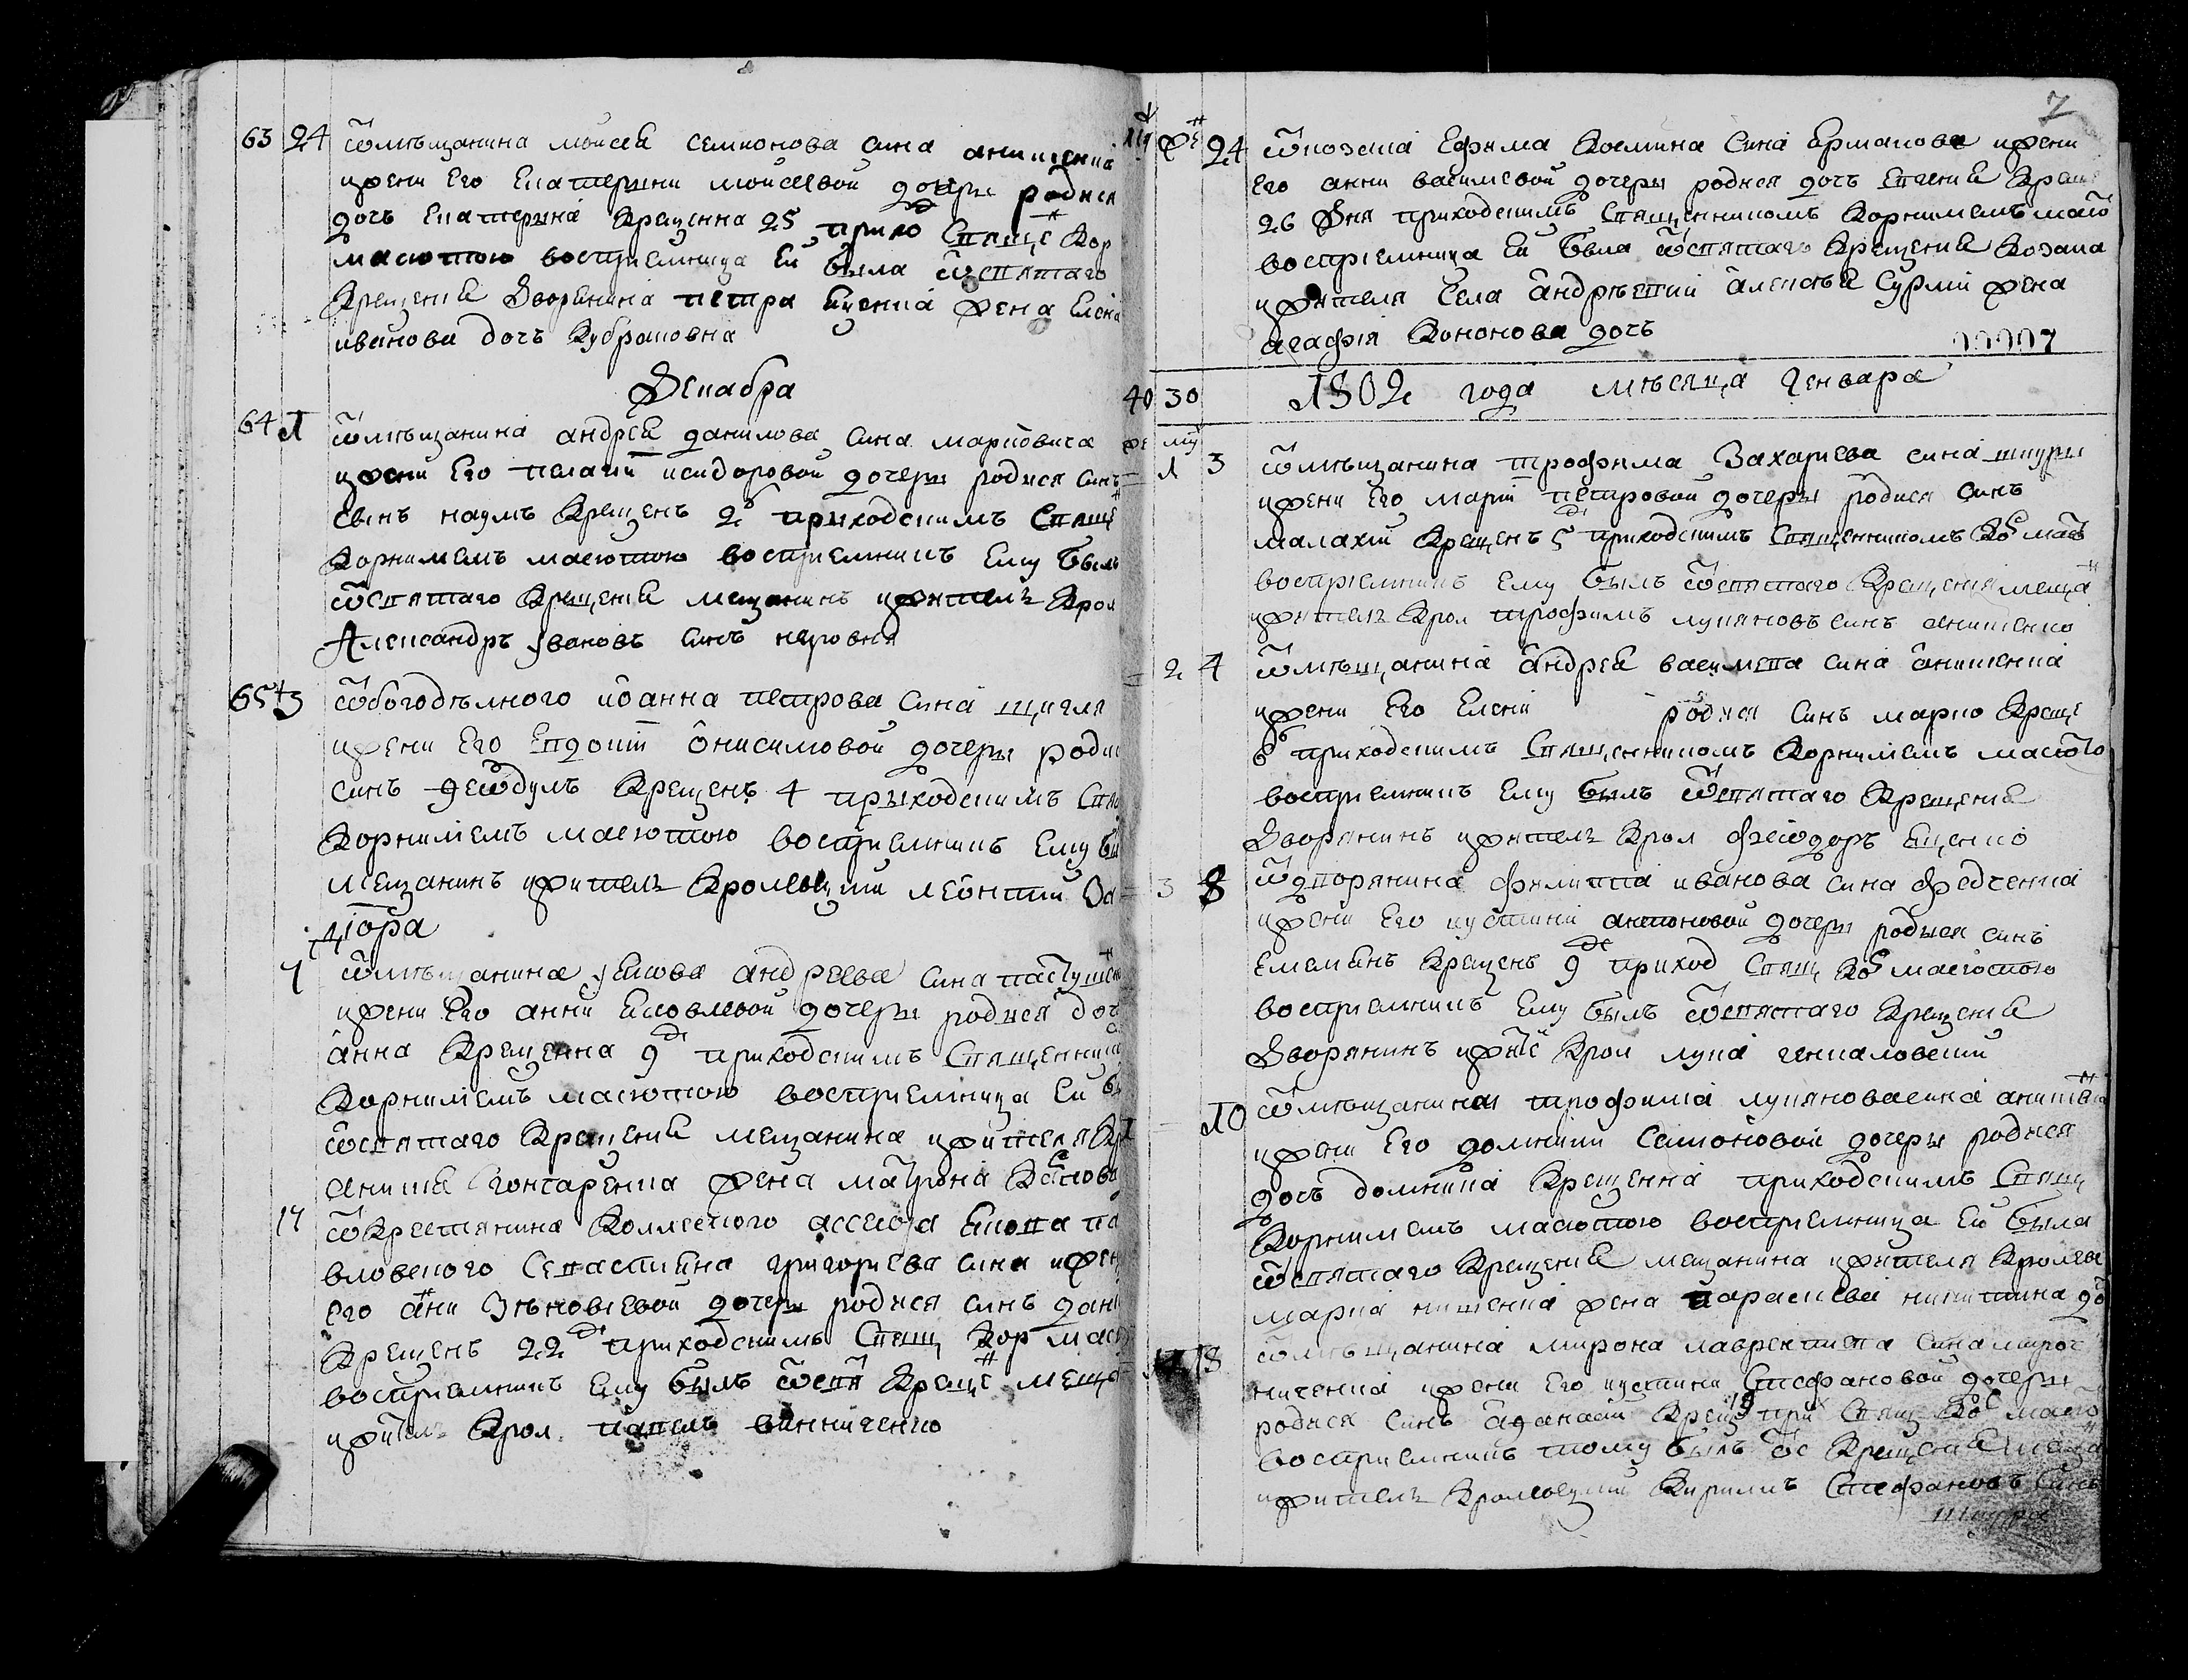 63 24 ѿ мѣщанина моисея семионова сина анищенка
и жени его екатерини моисеевой дочери родися
дочъ екатерина крещенна 25 прихо свяще кор
масютою восприемница ей была ѿ святаго
крещения дворянина петра яценка жена елена
иванова дочъ кубраковна
Декабра
64 1 ѿ мѣщанина андрея данилова сина марковича
и жени его пелагии исидоровой дочери родися синъ
синъ наумъ крещенъ 2 приходскимъ свяще
корнилиемъ масютою восприемникъ ему былъ
ѿ святаго крещения мещанинъ и житель крол
Александръ Ивановъ синъ
65 3 ѿ богодѣлного иоанна петрова сина щигля
и жени его евдокии онисимовой дочери роди
синъ феѡдулъ крещенъ 4 приходскимъ свя
корнилиемъ масютою восприемникъ ему бы
мещанинъ и житель кролевецкий леонтий
7 ѿ мѣщанина якова андреева сина
и жени его анни яковлевой дочери родися доч
анна крещенна 9 приходскимъ священник
корнилиемъ масютою восприемница ей б
ѿ святаго крещения мещанина и жителя кр
гончаренка жена матрона
17 ѿ крестянина коллеского ассесора якова па
вловского севастияна григориева сина и жен
его анни зѣновиевой дочери родися синъ дани
крещенъ 22 приходскимъ свящ кор мас
восприемникъ ему былъ ѿ свя креще меща
и жител крол павелъ винниченко
7
24 ѿ козака ефима космина сина ермакова и жени
его анни василевой дочери родися дочъ евгения креще
26 дня приходскимъ священникомъ корнилиемъ масю
восприемница ей была ѿ святаго крещения козака
и жителя села андрѣевки алексѣя сурмий жена
агафия кононова дочъ
40 30 1802 года мѣсяца Генвара
1 3 ѿ мѣщанина трофима захариева сина шкури
и жени его марии петровой дочери родися синъ
малахий крещенъ 5 приходскимъ священникомъ ко мас
восприемникъ ему былъ ѿ святаго крещения меща
и житель крол трофимъ лукяновъ синъ анищенко
2 4 ѿ мѣщанина андрея василиева сина анищенка
и жени его елени родися синъ марко креще
6 приходскимъ священникомъ корнилиемъ масюто
восприемникъ ему былъ ѿ святаго крещения
дворянинъ и житель крол феѡдоръ яценко
3 8 ѿ дворянина филиппа иванова сина федченка
и жени его иустини антоновой дочери родися синъ
емелиянъ крещенъ 9 приход свящ ко масютою
восприемникъ ему былъ ѿ святаго крещения
дворянинъ и жите крол лука
10 ѿ мѣщанина трофима лукянова сина
и жени его домникии семионовой дочери родися
дочъ домникиа крещенна приходскимъ свящ
корнилиемъ масютою восприемница ей была
ѿ святаго крещения мещанина и жителя кролеве
марка жена параскева никитина до
18 ѿ мѣщанина мирона лаврентиева сина
ниченка и жени его иустини стефановой дочери
родися синъ афанасий крещ 19 при свящ ко масю
восприемникъ тому былъ ѿ с крещения меща
и житель кролевецкий кирилъ стефановъ синъ
шкура